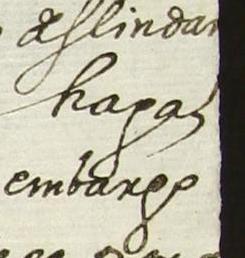 deslindar
haga
embargo